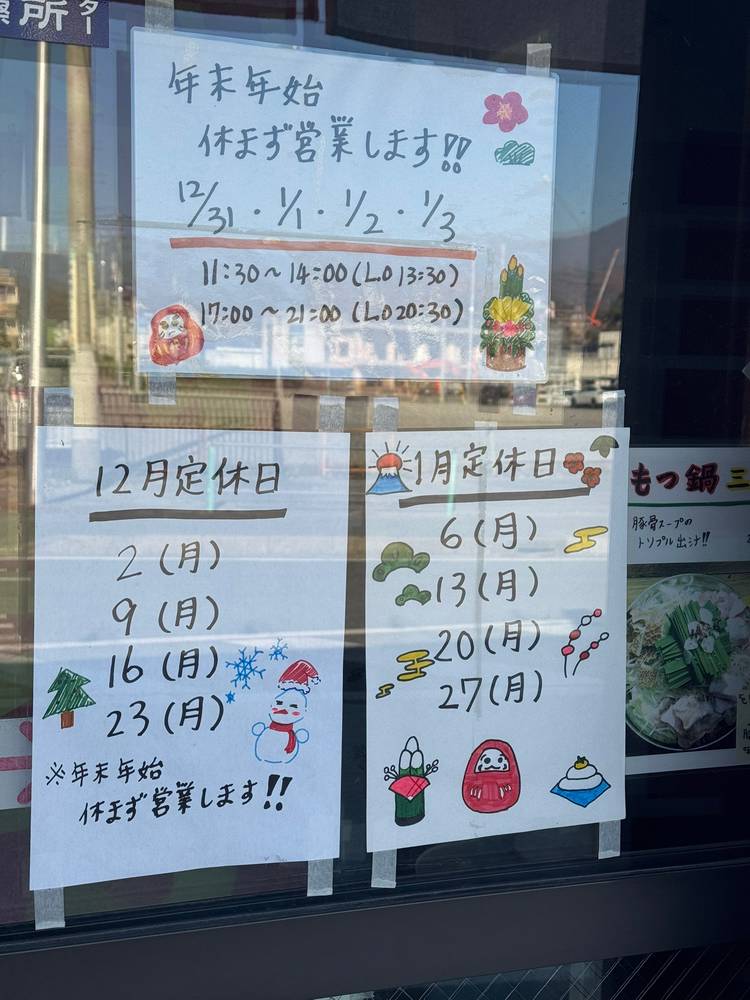 所
ター
年末年始
休まず営業します!!
12/31・1/1・1/2・1/3
11:30～14:00(L.O 13:30)
17:00～21:00(L.O 20:30)
12月定休日
2(月)
9(月)
16(月)
23(月)
※年末年始
休まず営業します!!
1月定休日
6(月)
13(月)
20(月)
27(月)
もつ鍋
豚骨スープの
トリプル出汁!!